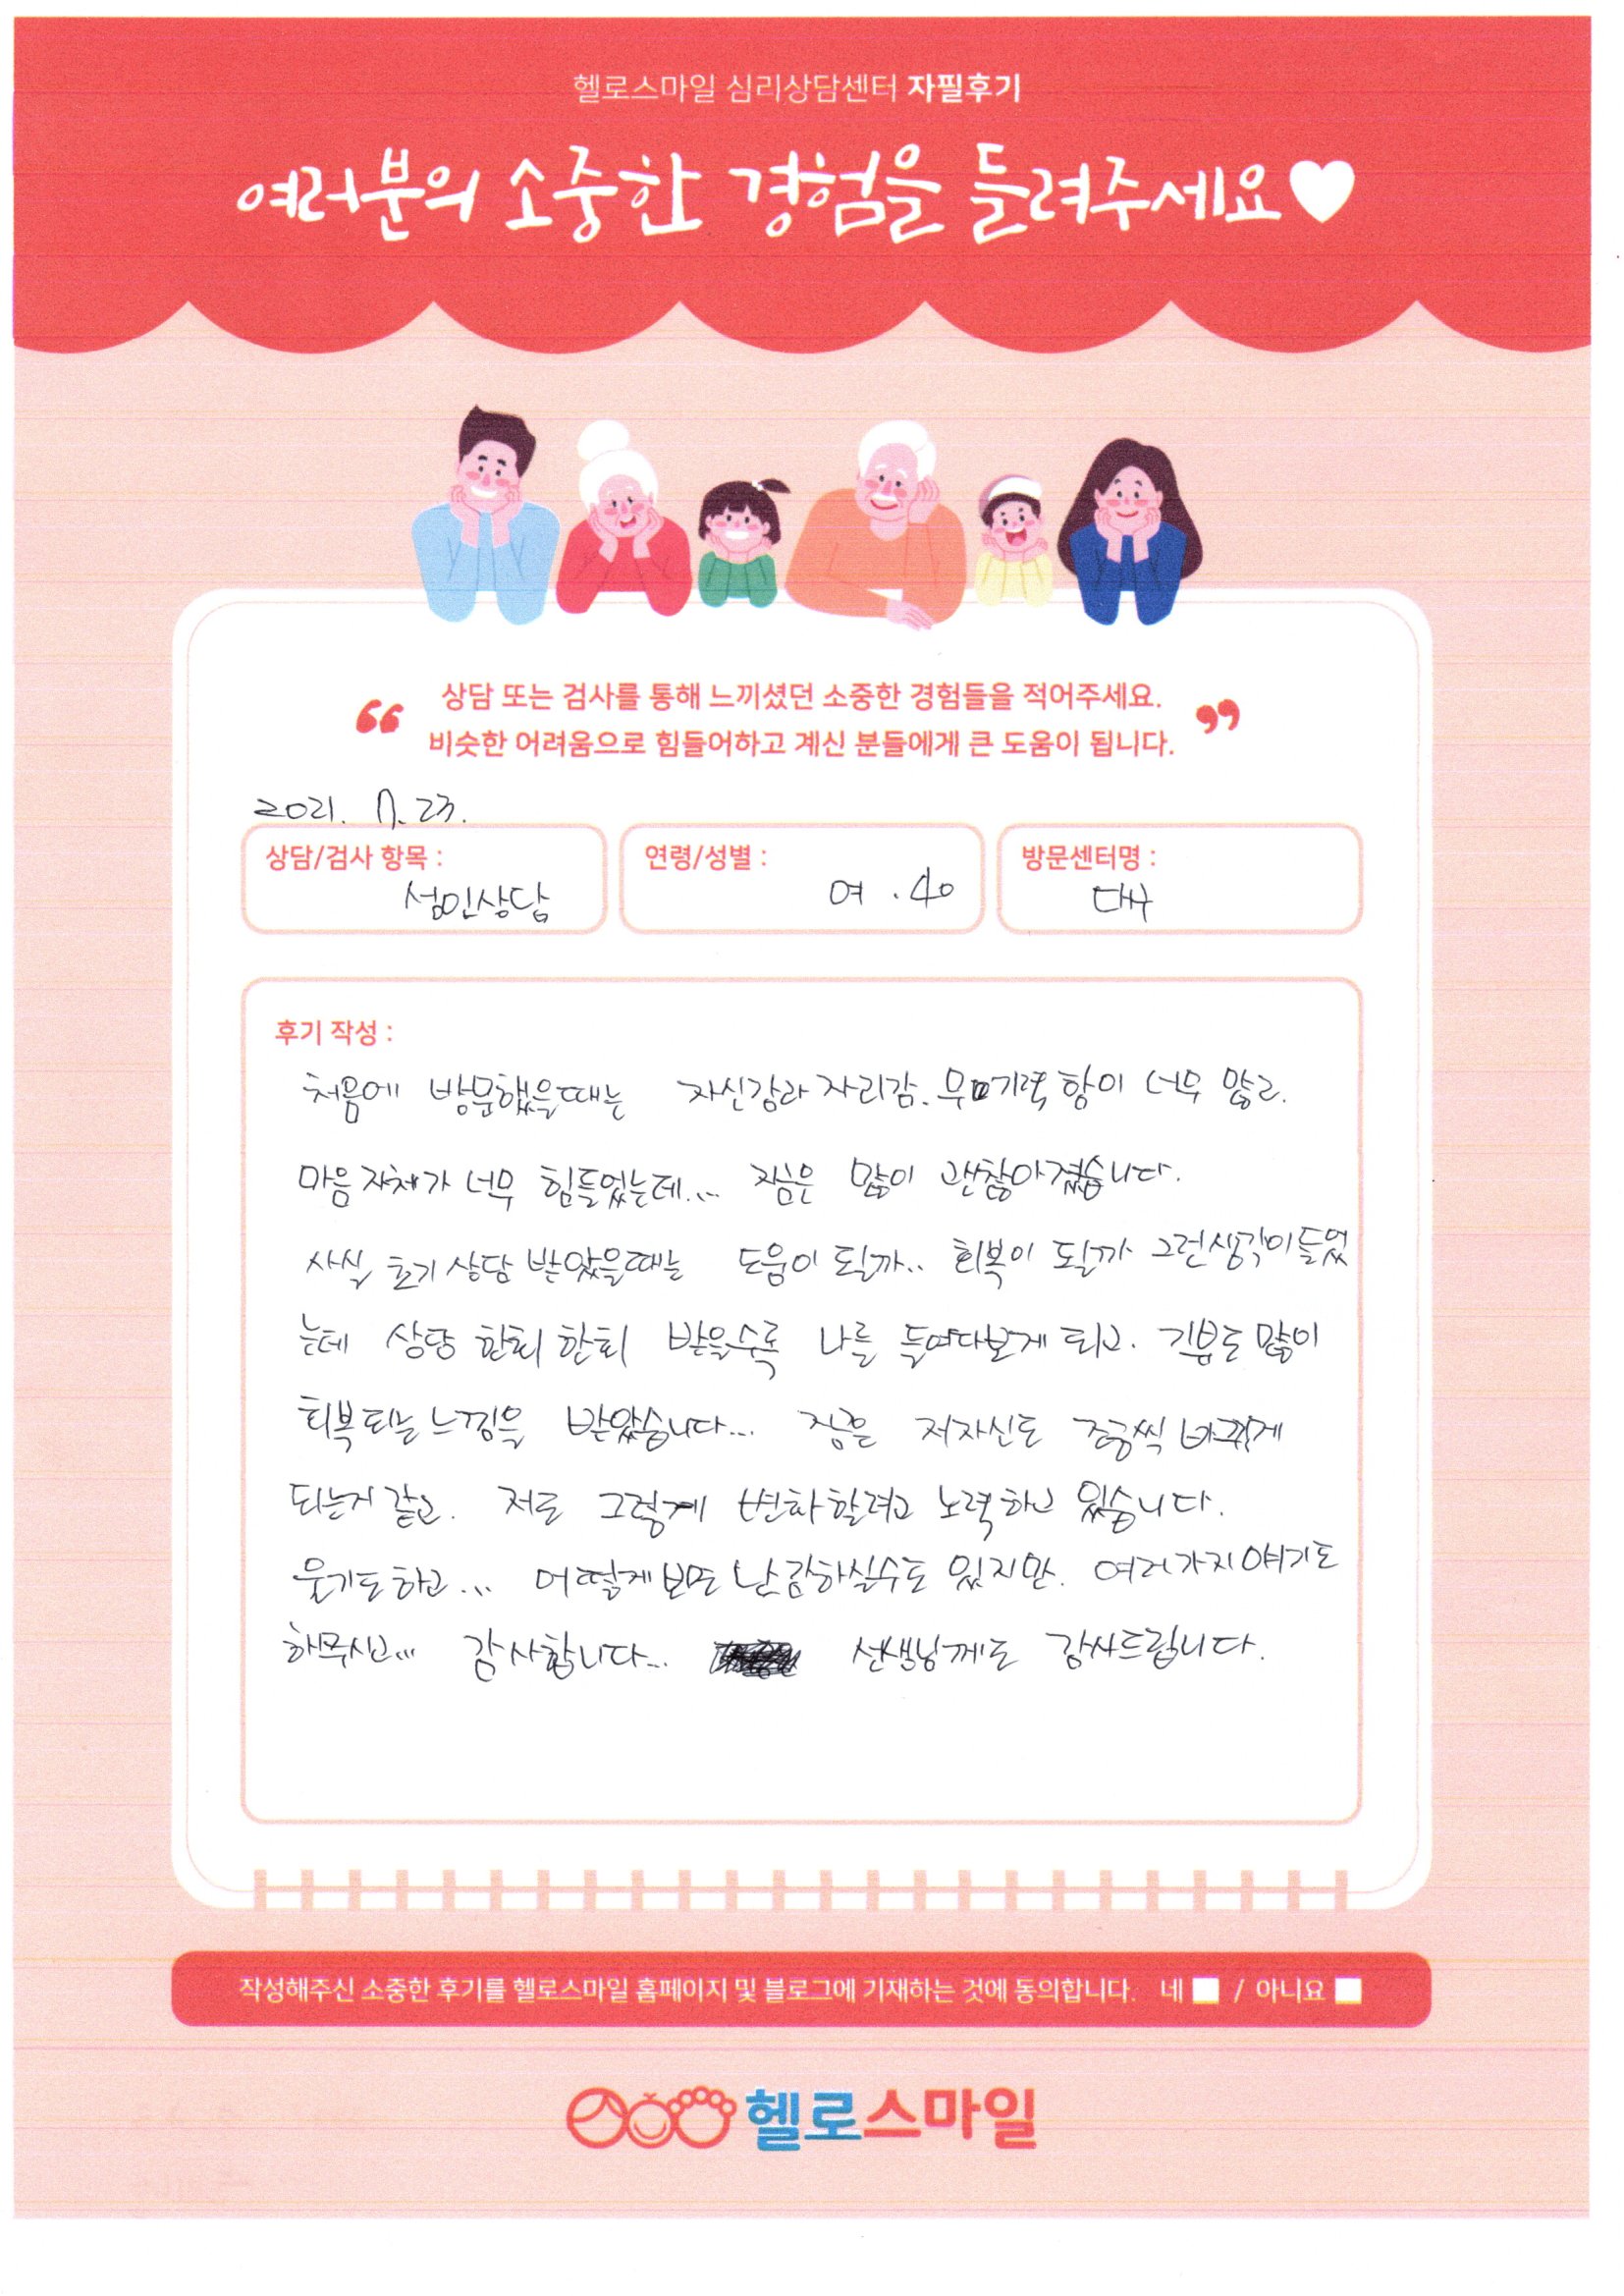 헬로스마일 심리상담센터 자필후기
여러분의 소중한 경험을 들려주세요♥
“ 상담 또는 검사를 통해 느끼셨던 소중한 경험들을 적어주세요. ”
비슷한 어려움으로 힘들어하고 계신 분들에게 큰 도움이 됩니다.
2021. 7. 23.
상담/검사 항목 : 성인상담
연령/성별 : 여 . 40
방문센터명 : 대구
후기 작성 :
처음에 방문했을때는 자신감과 자리감. 무기력 함이 너무 많고.
마음 자체가 너무 힘들었는데... 지금은 많이 괜찮아졌습니다.
사실 초기 상담 받았을때는 도움이 될까.. 회복이 될까 그런생각이들었
는데 상담 한회 한회 받을수록 나를 들여다보게 되고. 기분도 많이
회복되는 느낌을 받았습니다... 지금은 저자신도 조금씩 바뀌게
되는거 같고. 저도 그렇게 변화할려고 노력하고 있습니다.
울기도 하고... 어떻게 보면 난감하실수도 있지만. 여러가지 얘기도
해주시고... 감사합니다... 선생님께도 감사드립니다.
작성해주신 소중한 후기를 헬로스마일 홈페이지 및 블로그에 기재하는 것에 동의합니다. 네 / 아니요
헬로스마일